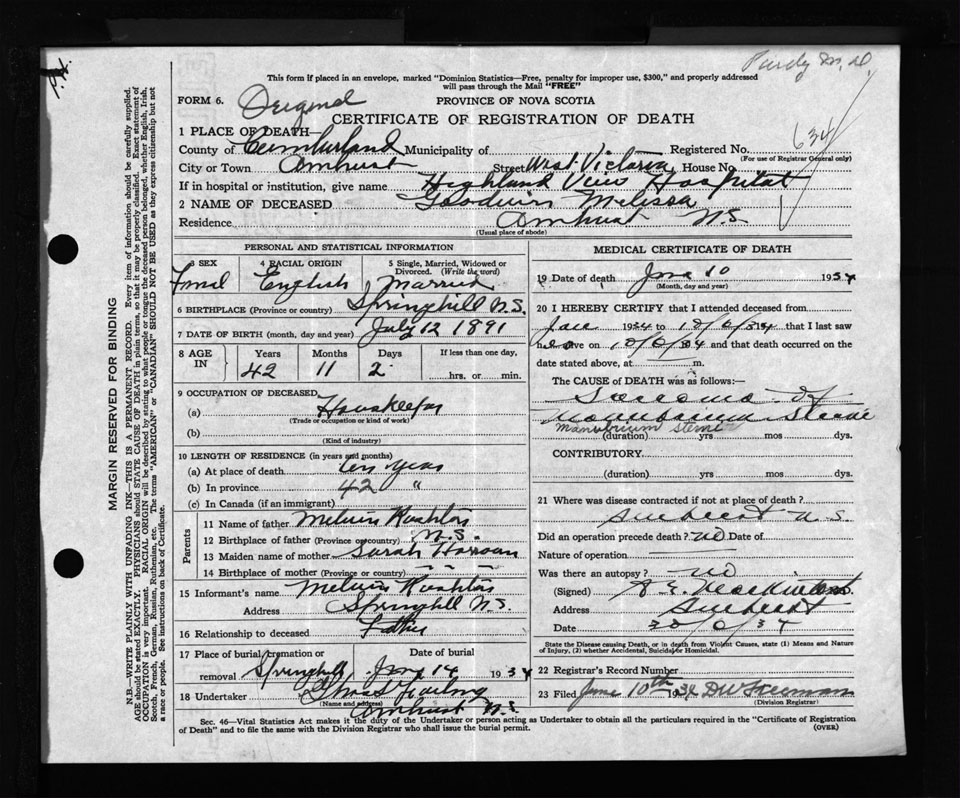 Purdy M.D.
This form if placed in an envelope, marked "Dominion Statistics—Free, penalty for improper use, $300," and properly addressed
will pass through the Mail "FREE"
FORM 6. Original PROVINCE OF NOVA SCOTIA
CERTIFICATE OF REGISTRATION OF DEATH
634
1 PLACE OF DEATH—
County of Cumberland Municipality of Registered No.
(For use of Registrar General only)
City or Town Amherst Street West Victoria House No.
If in hospital or institution, give name Highland View Hospital
2 NAME OF DECEASED Goodwin Melissa
Residence Amherst N.S
(Usual place of abode)
PERSONAL AND STATISTICAL INFORMATION
3 SEX 4 RACIAL ORIGIN 5 Single, Married, Widowed or Divorced. (Write the word)
Femel English Married
6 BIRTHPLACE (Province or country) Springhill N.S.
7 DATE OF BIRTH (month, day and year) July 12 1891
8 AGE IN Years Months Days If less than one day,
42 11 2 hrs. or min.
9 OCCUPATION OF DECEASED
(a) Houskeeper
(Trade or occupation or kind of work)
(b)
(Kind of industry)
10 LENGTH OF RESIDENCE (in years and months)
(a) At place of death ten years
(b) In province 42 "
(c) In Canada (if an immigrant)
Parents
11 Name of father Melvin
12 Birthplace of father (Province or country) N.S.
13 Maiden name of mother Sarah
14 Birthplace of mother (Province or country) " " "
15 Informant's name Melvin
Address Springhill N.S.
16 Relationship to deceased Father
17 Place of burial, cremation or removal Date of burial
Springhill June 14 1934
18 Undertaker
(Name and address)
Amherst N.S
MEDICAL CERTIFICATE OF DEATH
19 Date of death June 10 1934
(Month, day and year)
20 I HEREBY CERTIFY that I attended deceased from
June 1934 to 10/6/34 that I last saw
her alive on 10/6/34 and that death occurred on the
date stated above, at m.
The CAUSE OF DEATH was as follows:—
Sarcoma of
Manubrium Sterni
Manubrium Sterni
(duration) yrs mos dys.
CONTRIBUTORY
(duration) yrs. mos. dys.
21 Where was disease contracted if not at place of death?
Amherst N.S.
Did an operation precede death? No Date of
Nature of operation
Was there an autopsy? No
(Signed)
Address Amherst
Date 30/6/34
State the Disease causing Death, or in death from Violent Causes, state (1) Means and Nature
of Injury, (2) whether Accidental, Suicidal or Homicidal.
22 Registrar's Record Number
23 Filed June 10th 1934 DW Freeman
(Division Registrar)
Sec. 46—Vital Statistics Act makes it the duty of the Undertaker or person acting as Undertaker to obtain all the particulars required in the "Certificate of Registration
of Death" and to file the same with the Division Registrar who shall issue the burial permit. (OVER)
MARGIN RESERVED FOR BINDING
N.B.—WRITE PLAINLY WITH UNFADING INK—THIS IS A PERMANENT RECORD. Every item of information should be carefully supplied.
AGE should be stated EXACTLY. PHYSICIANS should STATE CAUSE OF DEATH in plain terms, so that it may be properly classified. Exact statement of
OCCUPATION is very important. RACIAL ORIGIN will be described by stating to what people or tongue the deceased person belonged, whether English, Irish,
Scotch, French, German, Russian, Ruthenian, etc. The terms "AMERICAN" or "CANADIAN" SHOULD NOT BE USED as they express citizenship but not
a race or people. See instructions on back of Certificate.